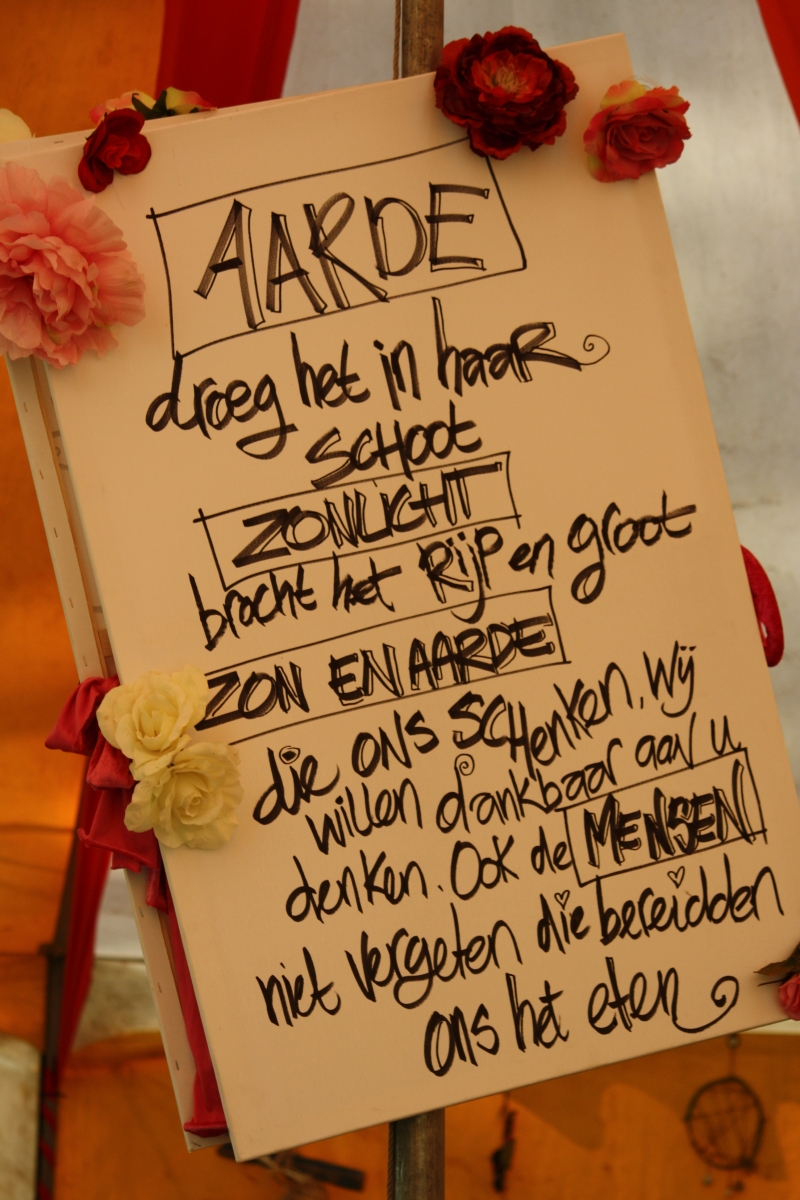 AARDE
droeg het in haar
SCHOOT
ZONLICHT
bracht het Rijp en groot
ZON EN AARDE
die ons SCHenken, wij
willen dankbaar aan u
denken. Ook de MENSEN
niet vergeten die bereidden
ons het eten